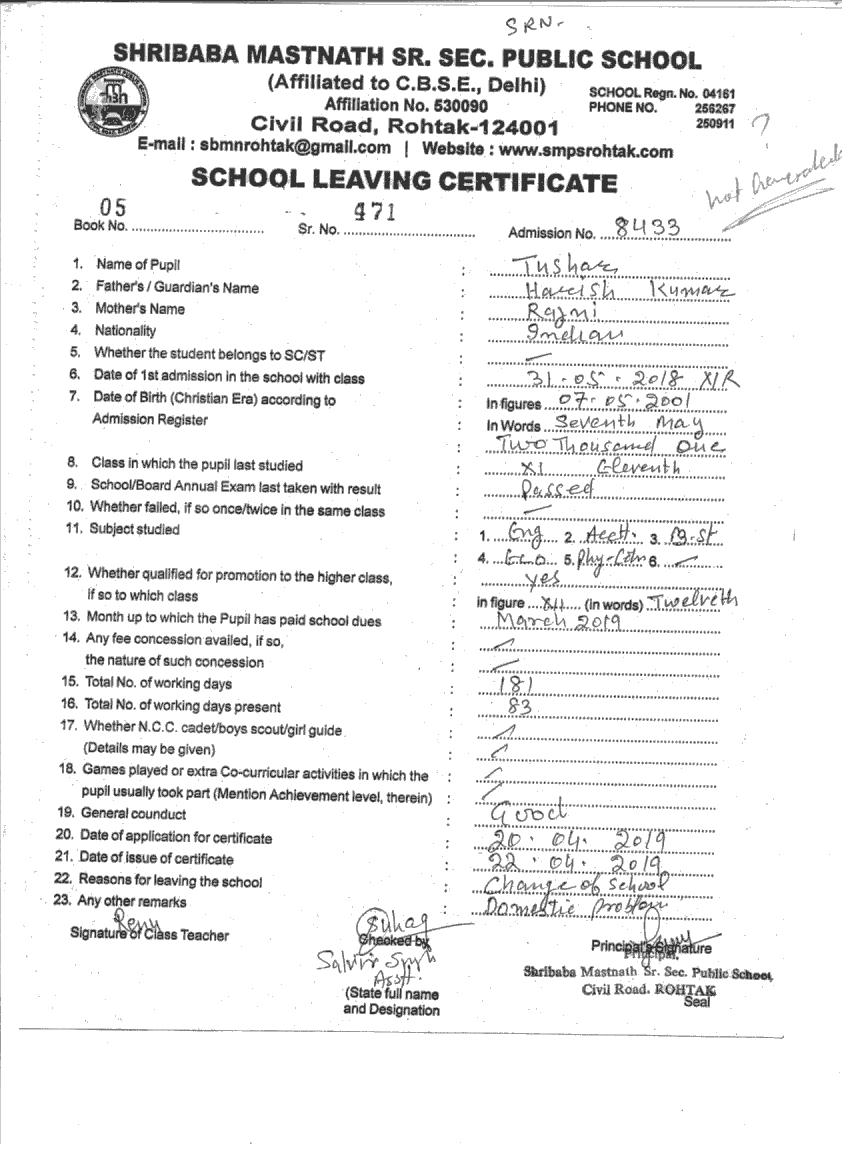 SRN-
SHRIBABA MASTNATH SR. SEC. PUBLIC SCHOOL
(Affiliated to C.B.S.E., Delhi)
Affiliation No. 530090
SCHOOL Regn. No. 04161
PHONE NO. 256267
250911
Civil Road, Rohtak-124001
E-mail : sbmnrohtak@gmail.com | Website : www.smpsrohtak.com
?
not Generated
SCHOOL LEAVING CERTIFICATE
Book No. 05 Sr. No. 471 Admission No. 8433
1. Name of Pupil : Tushar
2. Father's / Guardian's Name : Harish Kumar
3. Mother's Name : Rajni
4. Nationality : Indian
5. Whether the student belongs to SC/ST : —
6. Date of 1st admission in the school with class : 31-05-2018 XIR
7. Date of Birth (Christian Era) according to : In figures 07-05-2001
Admission Register : In Words Seventh May
Two Thousand One
8. Class in which the pupil last studied : XI Eleventh
9. School/Board Annual Exam last taken with result : Passed
10. Whether failed, if so once/twice in the same class : —
11. Subject studied : 1. Eng 2. Acctt. 3. B.St
4. Eco 5. Phy-Edn 6. —
12. Whether qualified for promotion to the higher class, : yes
if so to which class : in figure XII (In words) Twelveth
13. Month up to which the Pupil has paid school dues : March 2019
14. Any fee concession availed, if so, : —
the nature of such concession : —
15. Total No. of working days : 181
16. Total No. of working days present : 83
17. Whether N.C.C. cadet/boys scout/girl guide : —
(Details may be given) : —
18. Games played or extra Co-curricular activities in which the : —
pupil usually took part (Mention Achievement level, therein) : —
19. General counduct : Good
20. Date of application for certificate : 20.04.2019
21. Date of issue of certificate : 22.04.2019
22. Reasons for leaving the school : Change of School
23. Any other remarks : Domestic problem
Renu
Signature of Class Teacher
Suhag
Checked by
Asstt.
(State full name
and Designation
Principal's Signature
Principal,
Shribaba Mastnath Sr. Sec. Public School,
Civil Road, ROHTAK
Seal